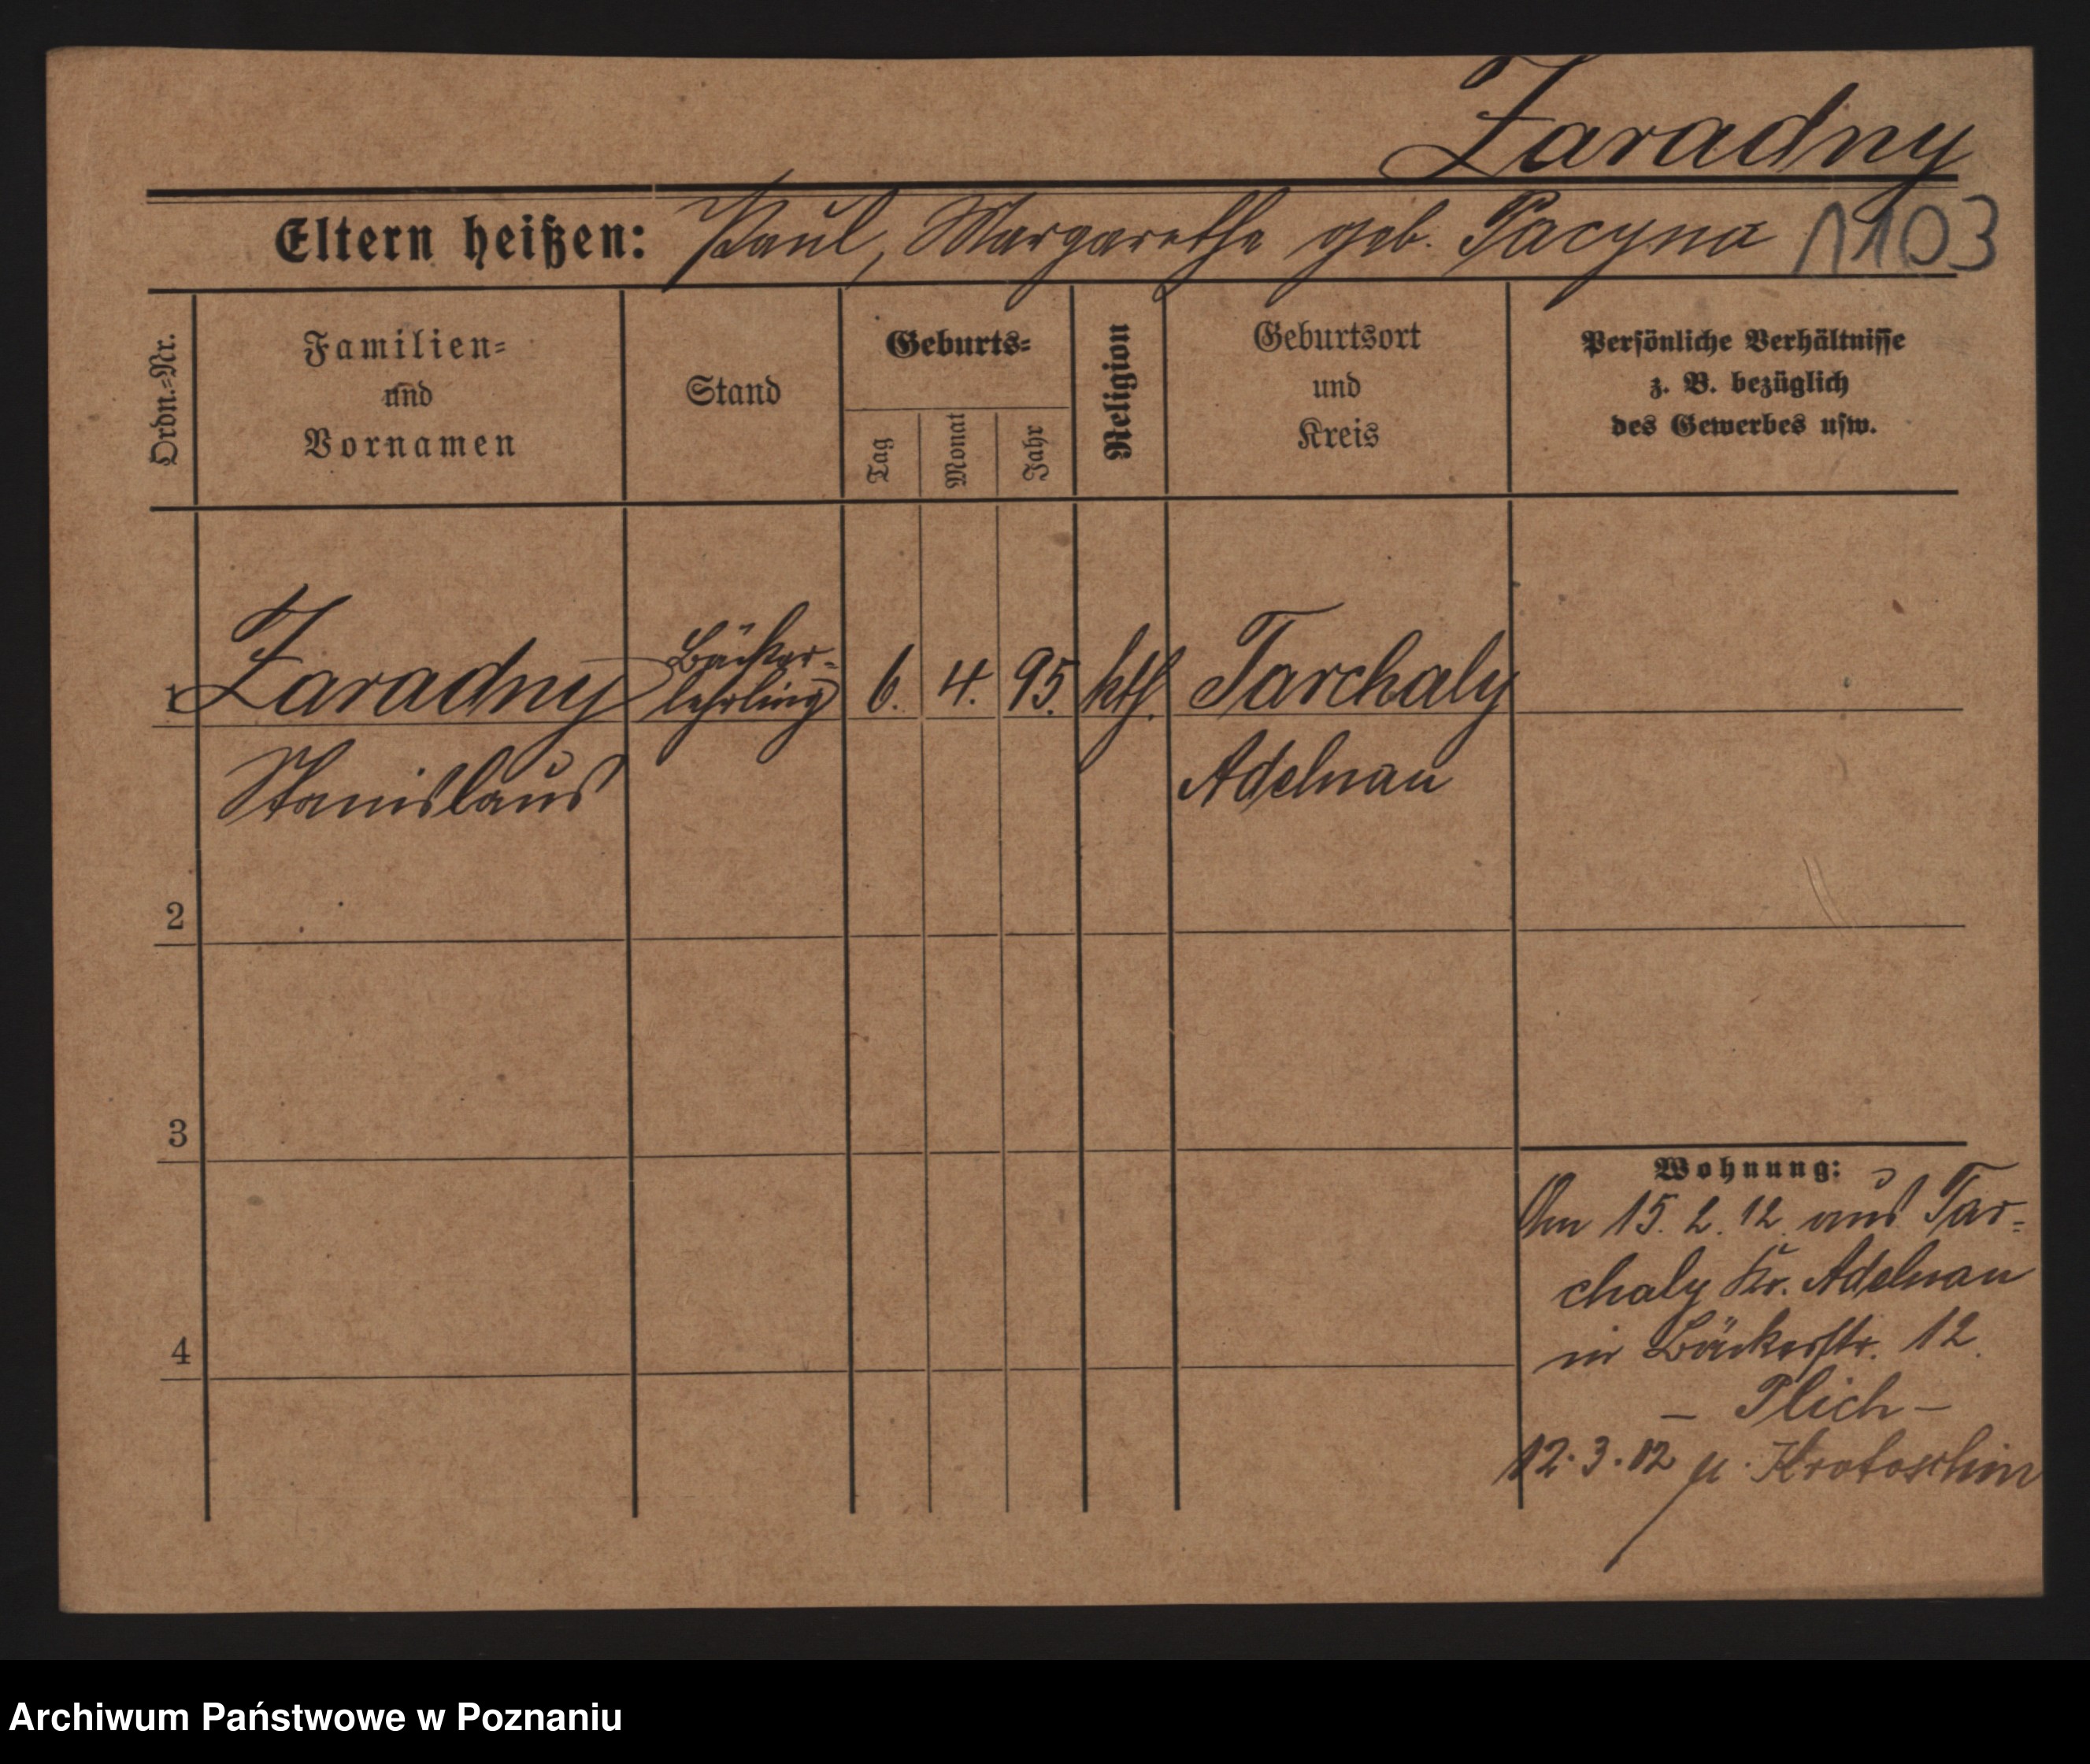 Zaradny
Eltern heißen: Paul, Margarethe geb. Pacyna 1103
Ordn.-Nr.
Familien- und Vornamen
Stand
Geburts-
Tag
Monat
Jahr
Religion
Geburtsort und Kreis
Persönliche Verhältnisse
z. B. bezüglich
des Gewerbes usw.
1 Zaradny Bäcker-lehrling 6. 4. 95. kth. Tarchaly
Stanislaus Adelnau
2
3
4
Wohnung:
Am 15. 2. 12 aus Tar-
chaly Kr. Adelnau
in Bäckerstr. 12.
– Plich –
12.3.12 n. Krotoschin
Archiwum Państwowe w Poznaniu